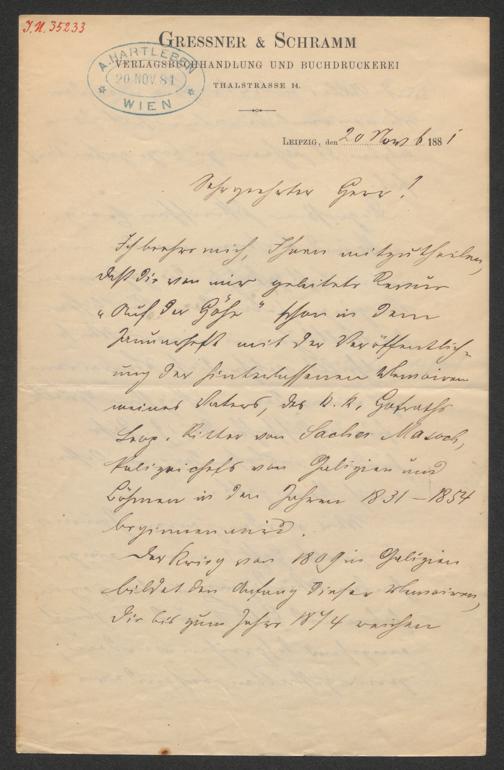 J.N. 35233
GRESSNER & SCHRAMM
VERLAGSBUCHHANDLUNG UND BUCHDRUCKEREI
THALSTRASSE 14.
A. HARTLEBEN
20 NOV. 81
WIEN
LEIPZIG, den 20 Novb 1881
Sehrgeehrter Herr!
Ich beehre mich, Ihnen mitzutheilen,
daß die von mir geleitete Revue
„Auf der Höhe" schon in dem
Jännerheft mit der Veröffentlich-
ung der hinterlassenen Memoiren
meines Vaters, des k. k. Hofraths
Leop. Ritter von Sacher Masoch,
Polizeichefs von Galizien und
Böhmen in den Jahren 1831–1854
beginnen wird.
Der Krieg von 1809 in Galizien
bildet den Anfang dieser Memoiren,
die bis zum Jahre 1874 reichen